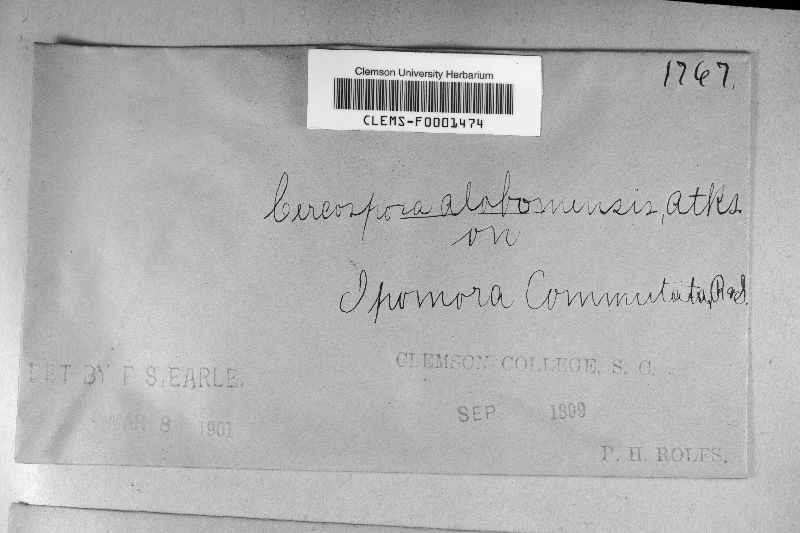 Clemson University Herbarium
CLEMS-F0001474
1767.
Cercospora alabamensis, Atks
on
Ipomora Commutata, R&S.
CLEMSON COLLEGE, S. C.
DET BY F S. EARLE.
SEP. 1899
MAR 8 1901
P. H. ROLFS.